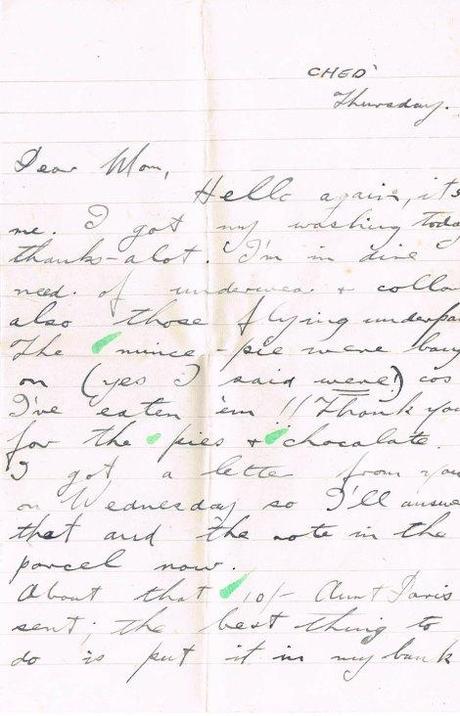 CHED'
Thursday.
Dear Mom,
Hello again, it's
me. I got my washing toda
thanks-alot. I'm in dire
need of underwear + colla
also those flying underpa
The mince-pie were bang
on (yes I said were!) cos
I've eaten 'em!! Thank you
for the pies + chocolate.
I got a letter from you
on Wednesday so I'll answe
that and the note in the
parcel now.
About that 10/- Aunt Doris
sent; the best thing to
do is put it in my bank